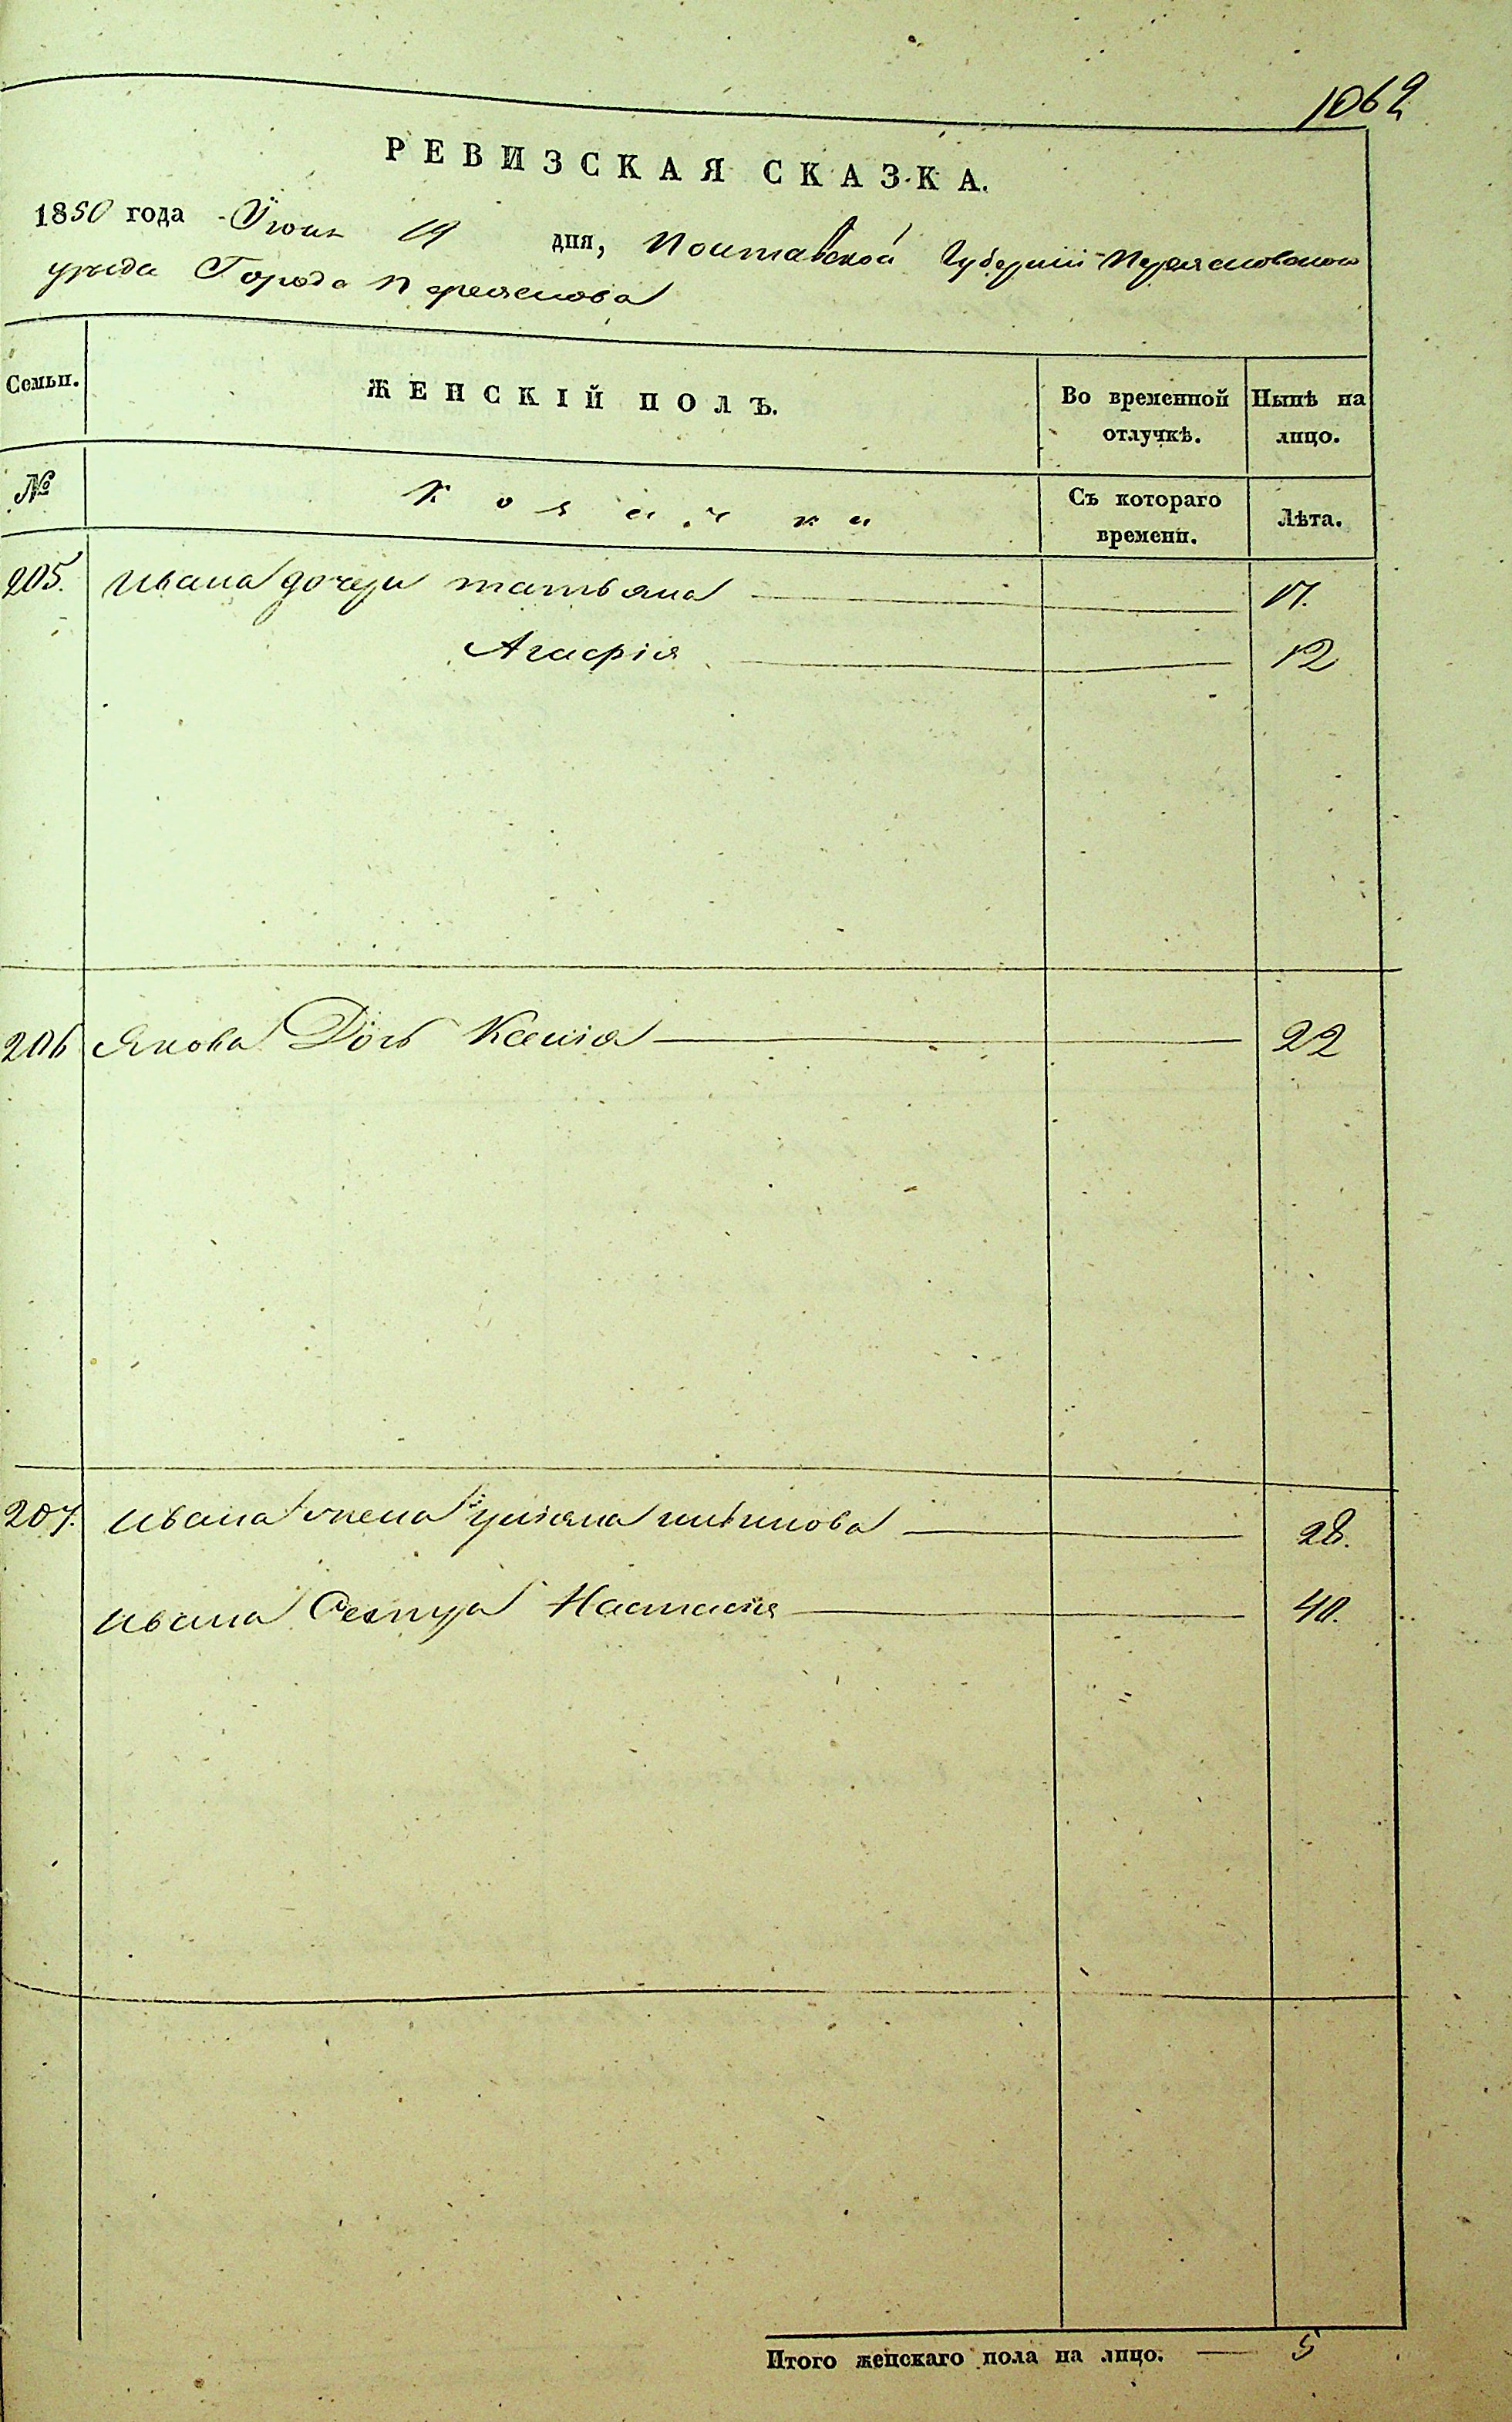 1062
РЕВИЗСКАЯ СКАЗКА.
1850 года Iюня 19 дня, Полтавской Губернiи Переяславскаго
уѣзда Города Переяслова
Семьи. ЖЕНСКIЙ ПОЛЪ. Во временной отлучкѣ. Нынѣ на лицо.
№ Козачки Съ котораго времени. Лѣта.
205. Ивана дочери татьяна 17.
Агафiя 12
206 Якова Дочь Ксенiя 22
207. Ивана жена улiяна 28.
Ивана Сестра Настасiя 40.
Итого женскаго пола на лицо. — 5